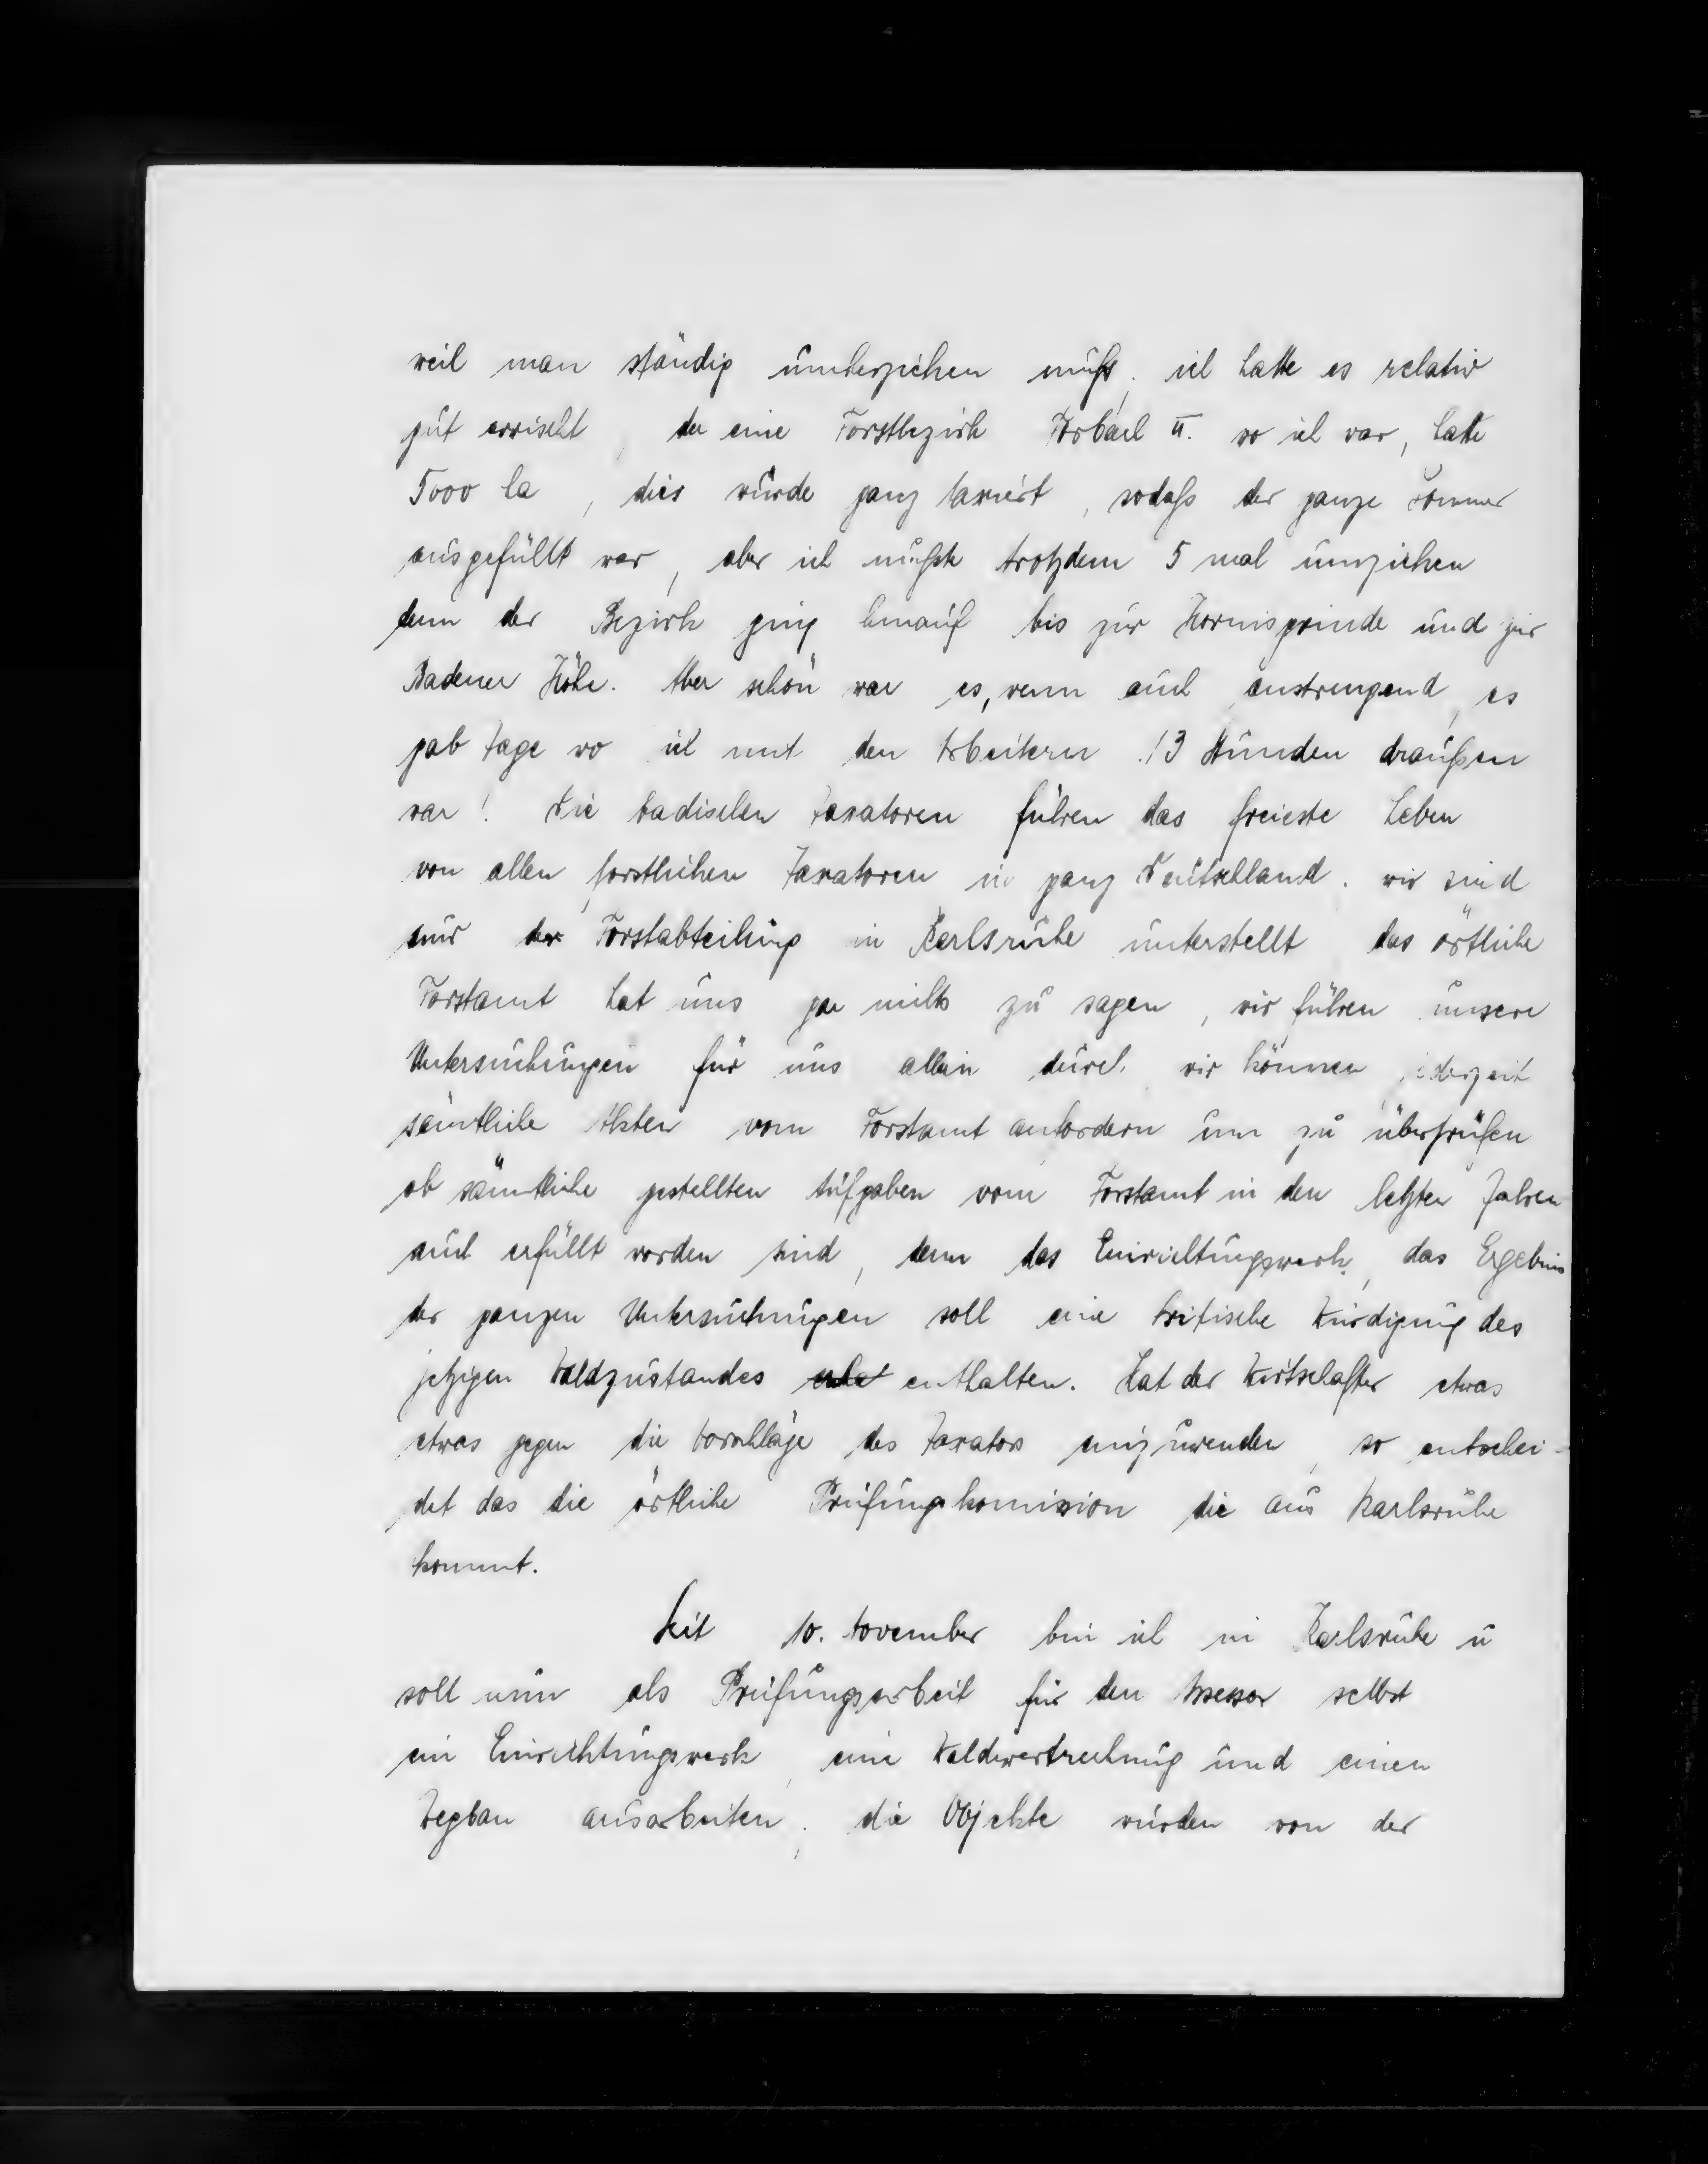 weil man ständig umherziehen muß, ich hatte es relativ
gut erwischt, der eine Forstbezirk Forbach II. wo ich war, hatte
5000 ha, dies wurde ganz taxiert, sodaß der ganze Sommer
ausgefüllt war, aber ich mußte trotzdem 5 mal umziehen
denn der Bezirk ging hinauf bis zur Hornisgrinde und zur
Badener Höhe. Aber schön war es, wenn auch anstrengend, es
gab Tage wo ich mit den Arbeitern 13 Stunden draußen
war! Die badischen Taxatoren führen das freieste Leben
von allen forstlichen Taxatoren in ganz Deutschland. wir sind
nur der Forstabteilung in Karlsruhe unterstellt das örtliche
Forstamt hat uns gar nichts zu sagen, wir führen unsere
Untersuchungen für uns allein durch. wir können, jederzeit
sämtliche Akten vom Forstamt anfordern um zu überprüfen
ob sämtliche gestellten Aufgaben vom Forstamt in den letzten Jahren
auch erfüllt worden sind, denn das Einrichtungswerk, das Ergebnis
der ganzen Untersuchungen soll eine kritische Würdigung des
jetzigen Waldzustandes enthalten. Hat der Wirtschafter etwas
etwas gegen die Vorschläge des Taxators einzuwenden, so entschei-
det das die örtliche Prüfungskomission die aus Karlsruhe
kommt.
Seit 10. November bin ich in Karlsruhe u
soll nun als Prüfungsarbeit für den Assessor selbst
ein Einrichtungswerk, eine Waldwertrechnung und einen
Wegbau ausarbeiten, die Objekte wurden von der